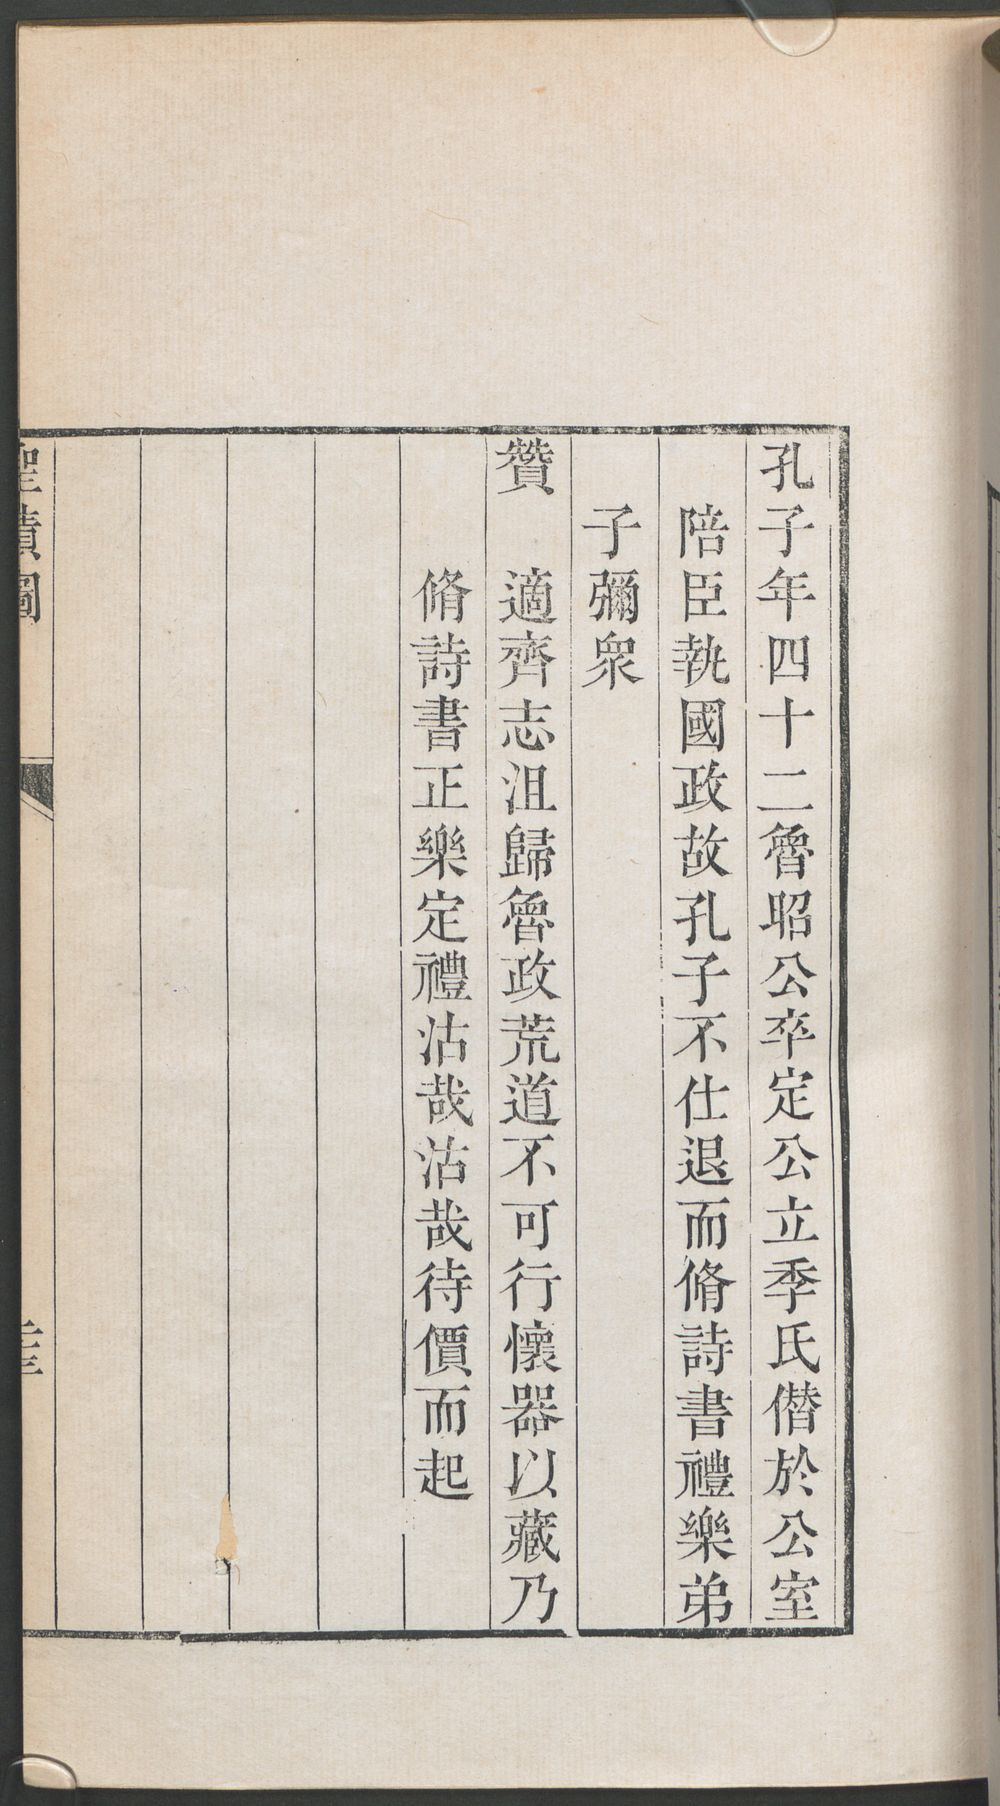 孔子年四十二魯昭公卒定公立季氏僭於公室
陪臣執國政故孔子不仕退而脩詩書禮樂弟
子彌眾
贊　適齊志沮歸魯政荒道不可行懷器以藏乃
脩詩書正樂定禮沽哉沽哉待價而起
聖蹟圖